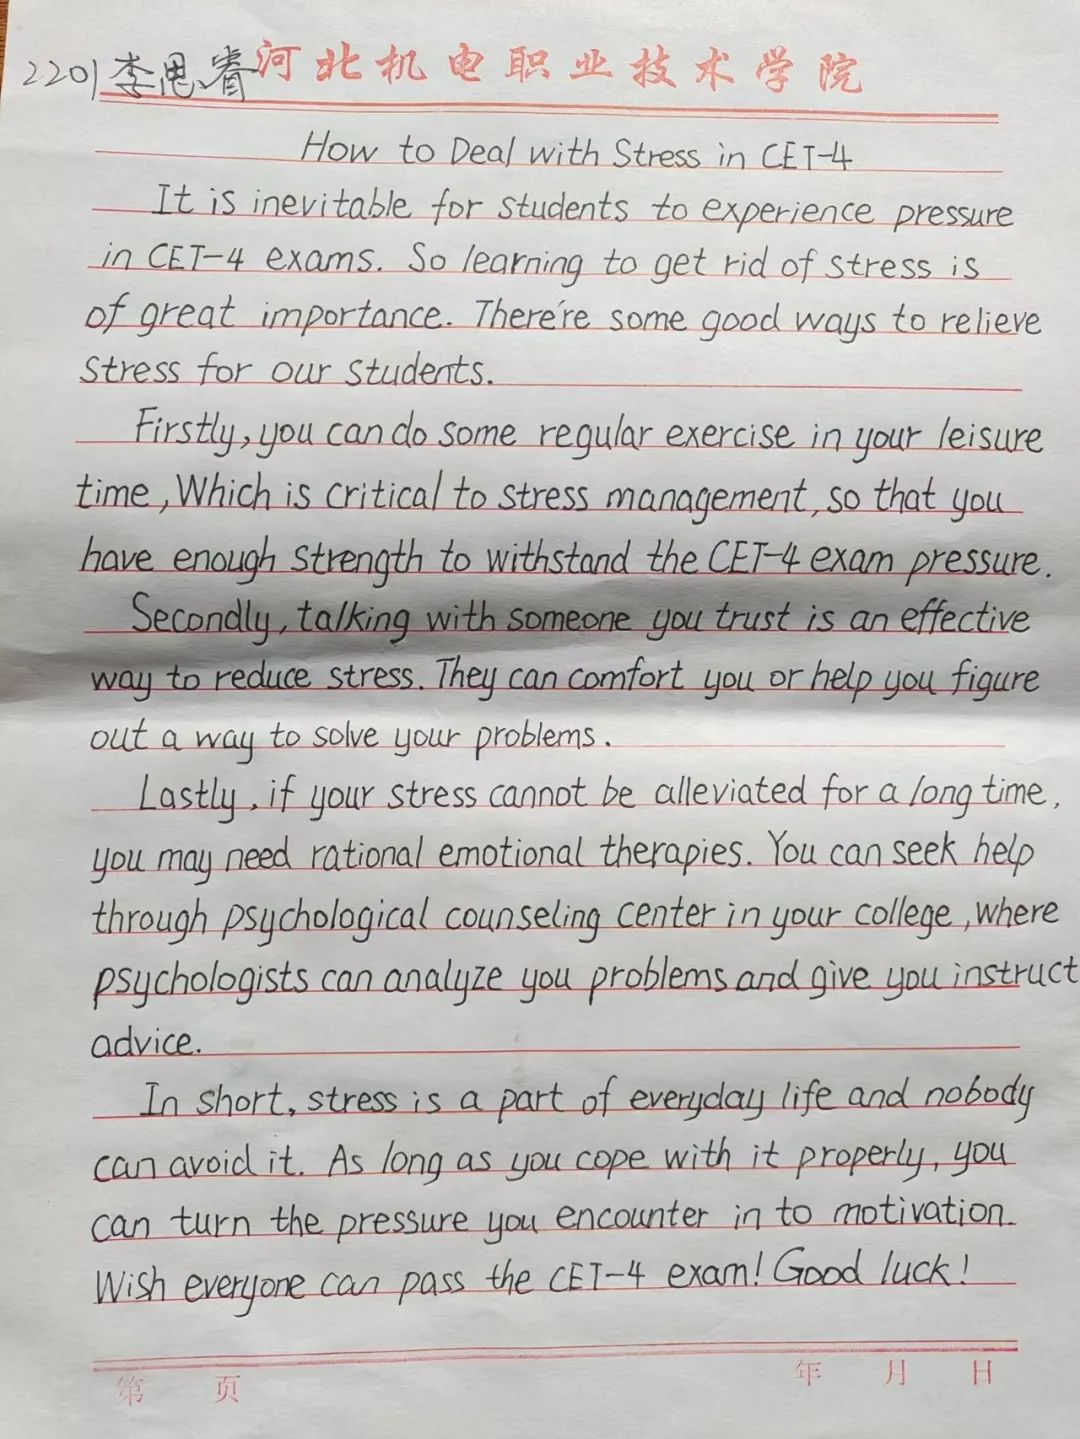 2201李思睿 河北机电职业技术学院
How to Deal with Stress in CET-4
It is inevitable for students to experience pressure
in CET-4 exams. So learning to get rid of stress is
of great importance. There're some good ways to relieve
stress for our students.
Firstly, you can do some regular exercise in your leisure
time, Which is critical to stress management, so that you
have enough strength to withstand the CET-4 exam pressure.
Secondly, talking with someone you trust is an effective
way to reduce stress. They can comfort you or help you figure
out a way to solve your problems.
Lastly, if your stress cannot be alleviated for a long time,
you may need rational emotional therapies. You can seek help
through psychological counseling center in your college, where
psychologists can analyze you problems and give you instruct
advice.
In short, stress is a part of everyday life and nobody
can avoid it. As long as you cope with it properly, you
can turn the pressure you encounter in to motivation.
Wish everyone can pass the CET-4 exam! Good luck!
第 页 年 月 日